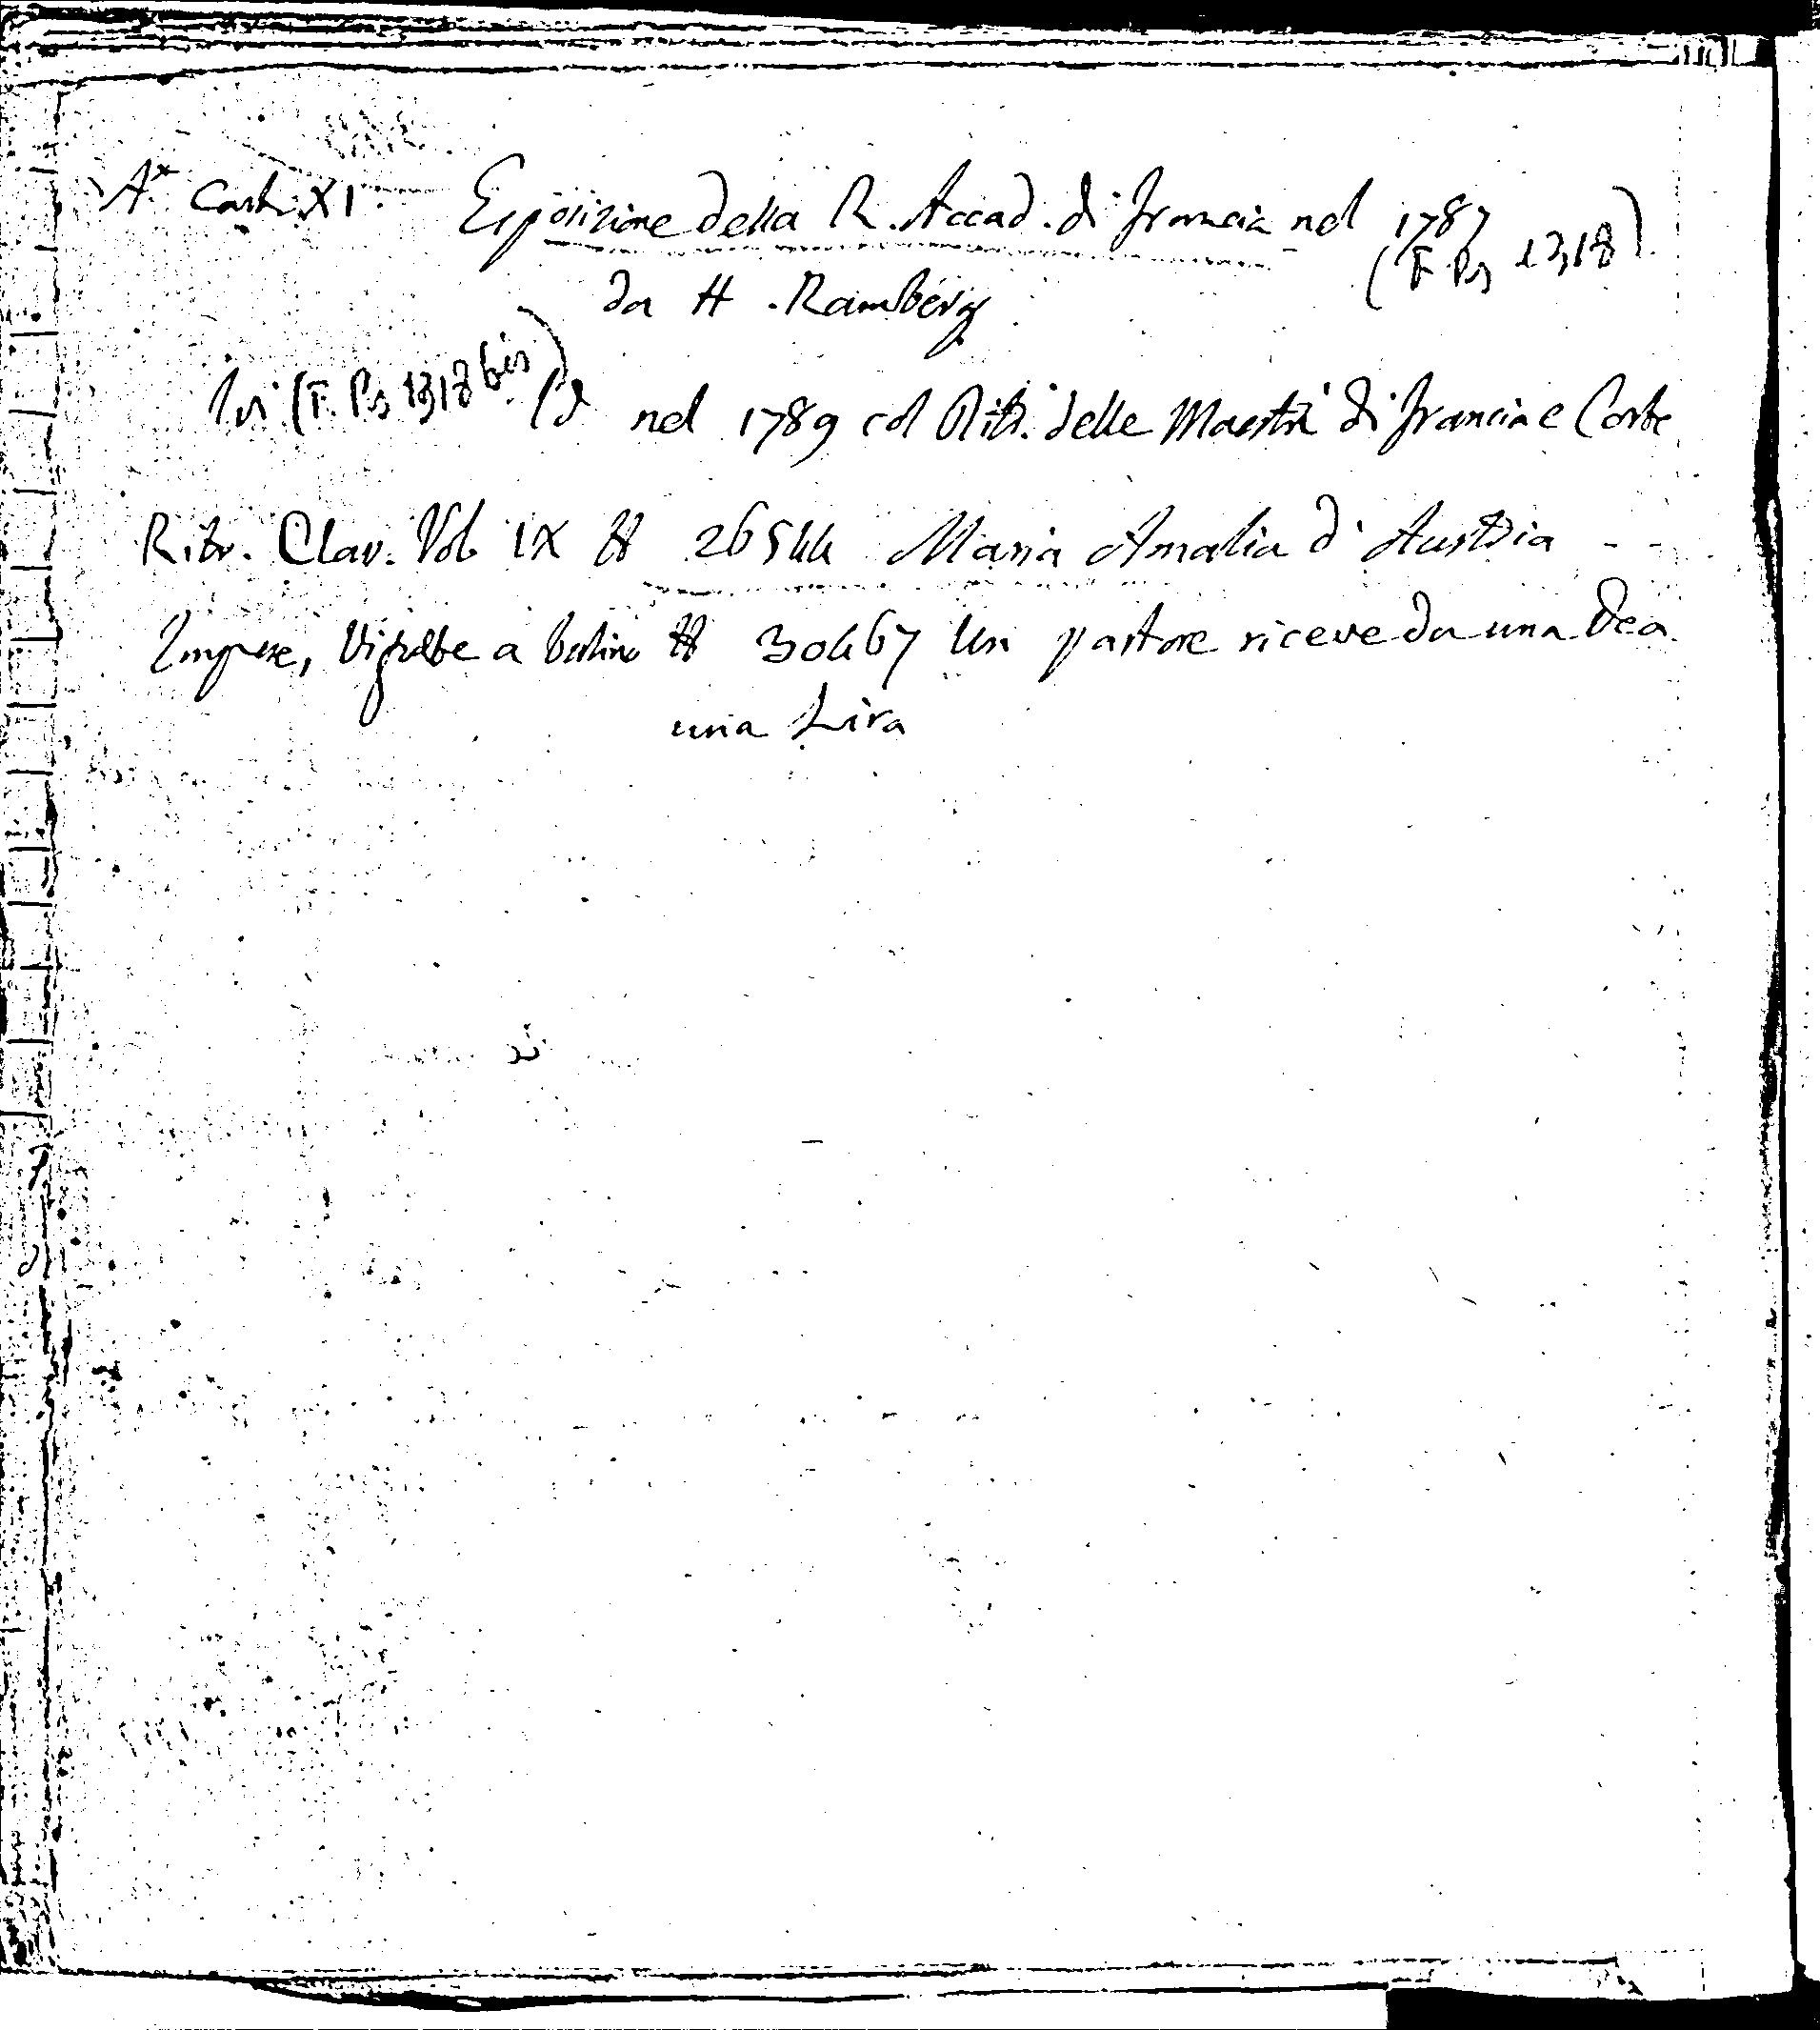 A* Cart. XI. Esposizione della R. Accad. di Francia nel 1787
(F. Ps 1318)
da H. Ramberg
Ivi (F. Ps 1318 bis) Id nel 1789 col Ritr. delle Maestà di Francia e Corte
Ritr. Clav. Vol. IX # 26544 Maria Amalia d'Austria - -
Imprese, Vignette a bulino # 30467 Un pastore riceve da una Dea
una Lira